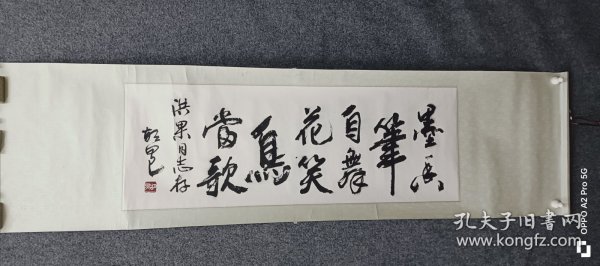 墨香
筆
自舞
花笑
鳥
當歌
洪果同志存
孔夫子旧书网
www.kongfz.com
OPPO A2 Pro 5G